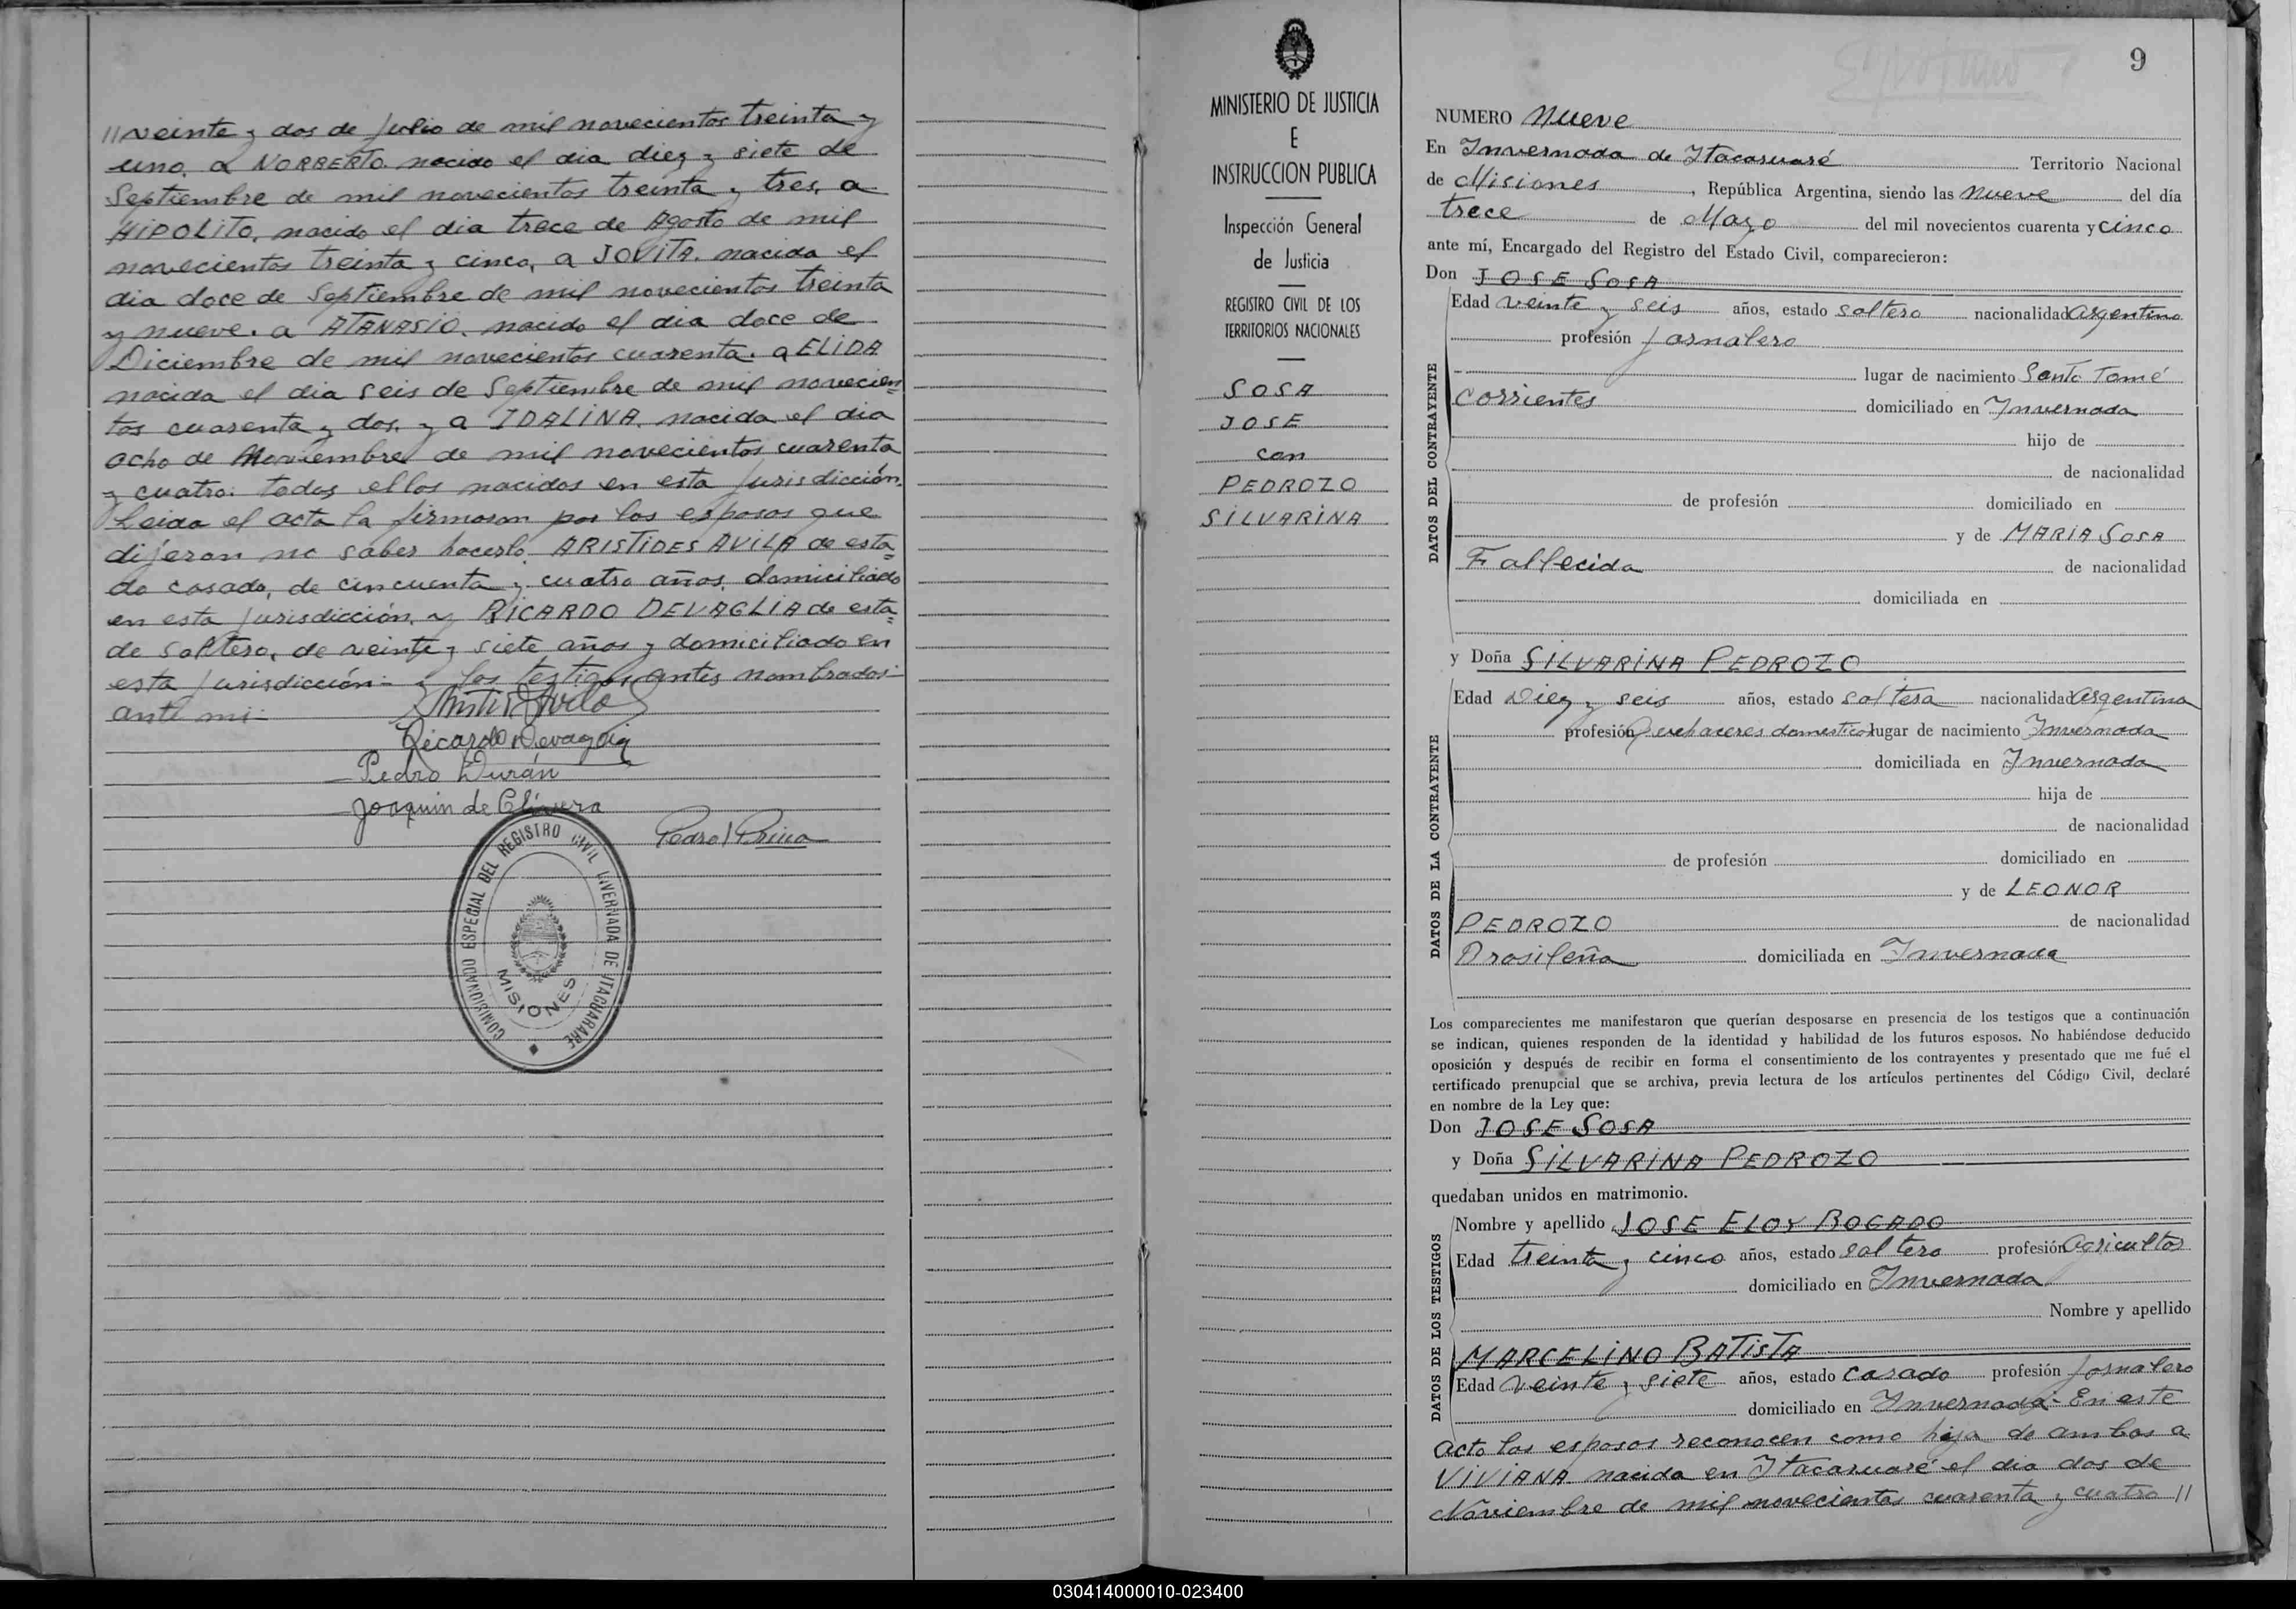 // veinte y dos de Julio de mil novecientos treinta y
uno. a NORBERTO. nacido el dia diez y siete de
Septiembre de mil novecientos treinta y tres, a
HIPOLITO, nacido el dia trece de Agosto de mil
novecientos treinta y cinco, a JOVITA. nacida el
dia doce de Septiembre de mil novecientos treinta
y nueve. a ATANASIO. nacido el dia doce de
Diciembre de mil novecientos cuarenta. a ELIDA
nacida el dia seis de Septiembre de mil novecien=
tos cuarenta y dos. y a IDALINA. nacida el dia
ocho de Noviembre de mil novecientos cuarenta
y cuatro. todos ellos nacidos en esta Jurisdicción.
Leida el acta la firmaron por los esposos que
dijeron no saber hacerlo. ARISTIDES AVILA de esta=
do casado, de cincuenta y cuatro años, domiciliado
en esta Jurisdicción. y RICARDO DEVAGLIA de esta=
de soltero, de veinte y siete años y domiciliado en
esta Jurisdicción- y los testigos antes nombrados-
ante mi-
Ricardo Devaglia
Pedro Durán
Joaquin de Olivera
Pedro Prino
COMISIONADO ESPECIAL DEL REGISTRO CIVIL INVERNADA DE ITACUARARE
MISIONES
MINISTERIO DE JUSTICIA
E
INSTRUCCION PUBLICA
Inspección General
de Justicia
REGISTRO CIVIL DE LOS
TERRITORIOS NACIONALES
SOSA
JOSE
con
PEDROZO
SILVARINA
9
NUMERO Nueve
En Invernada de Itacaruaré Territorio Nacional
de Misiones, República Argentina, siendo las nueve del día
trece de Mayo del mil novecientos cuarenta y cinco
ante mí, Encargado del Registro del Estado Civil, comparecieron:
Don JOSE SOSA
DATOS DEL CONTRAYENTE
Edad veinte y seis años, estado soltero nacionalidad Argentino
profesión Jornalero
lugar de nacimiento Santo Tomé
Corrientes domiciliado en Invernada
hijo de
de nacionalidad
de profesión domiciliado en
y de MARIA SOSA
Fallecida de nacionalidad
domiciliada en
y Doña SILVARINA PEDROZO
DATOS DE LA CONTRAYENTE
Edad Diez y seis años, estado soltera nacionalidad Argentina
profesión Quehaceres domesticos lugar de nacimiento Invernada
domiciliada en Invernada
hija de
de nacionalidad
de profesión domiciliado en
y de LEONOR
PEDROZO de nacionalidad
Brasileña domiciliada en Invernada
Los comparecientes me manifestaron que querían desposarse en presencia de los testigos que a continuación
se indican, quienes responden de la identidad y habilidad de los futuros esposos. No habiéndose deducido
oposición y después de recibir en forma el consentimiento de los contrayentes y presentado que me fué el
certificado prenupcial que se archiva, previa lectura de los artículos pertinentes del Código Civil, declaré
en nombre de la Ley que:
Don JOSE SOSA
y Doña SILVARINA PEDROZO
quedaban unidos en matrimonio.
DATOS DE LOS TESTIGOS
Nombre y apellido JOSE ELOY BOGADO
Edad treinta y cinco años, estado soltero profesión Agricultor
domiciliado en Invernada
Nombre y apellido
MARCELINO BATISTA
Edad veinte y siete años, estado casado profesión Jornalero
domiciliado en Invernada- En este
acto los esposos reconocen como hija de ambos a
VIVIANA nacida en Itacaruaré el dia dos de
Noviembre de mil novecientos cuarenta y cuatro //
030414000010-023400